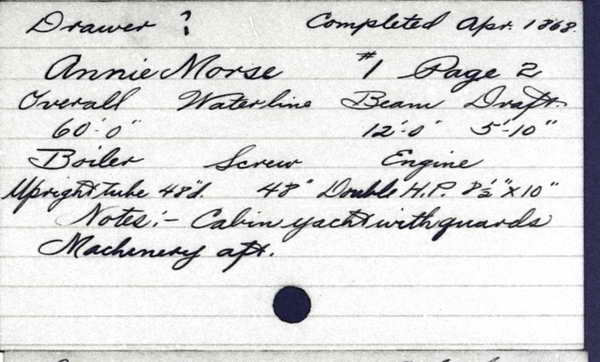 Drawer ? Completed Apr. 1868.
Annie Morse #1 Page 2
Overall Waterline Beam Draft.
60'-0" 12'-0' 5'-10"
Boiler Screw Engine
Upright tube 48"d. 48" Double H.P. 8½" x 10"
Notes:- Cabin yacht with guards
Machinery aft.